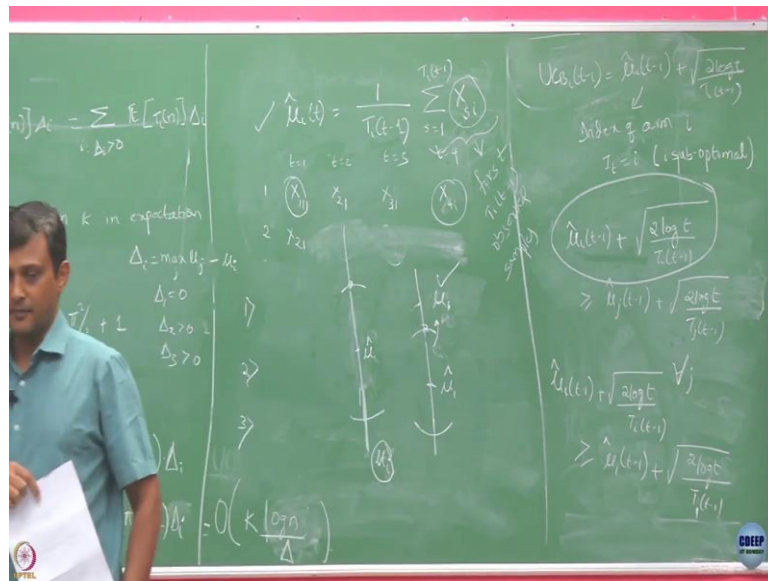 n)] Δi = ∑ E[Ti(n)] Δi
i: Δi>0
n K in expectation
Δi = max μj - μi
j
Δ1=0
Δ2>0
Δ3>0
π²/3 + 1
) Δi
)Δi = O( K log n / Δ )
✓ μ̂i(t) = 1/Ti(t-1) ∑ Xsi
Ti(t-1)
s=1
t=1 t=2 t=3 t=4
1 X11 X21 X31
2 X21
first
observed
samples
1)
2)
3)
μ̂i
μi
μ1 ✓
μ̂1
UCBi(t-1) = μ̂i(t-1) + √(2logt / Ti(t-1))
Index of arm i
It = i (i sub-optimal)
μ̂i(t-1) + √(2 log t / Ti(t-1))
≥ μ̂j(t-1) + √(2logt / Tj(t-1))
∀j
μ̂i(t-1) + √(2logt / Ti(t-1))
≥ μ̂1(t-1) + √(2logt / T1(t-1))
NPTEL
CDEEP
IIT BOMBAY